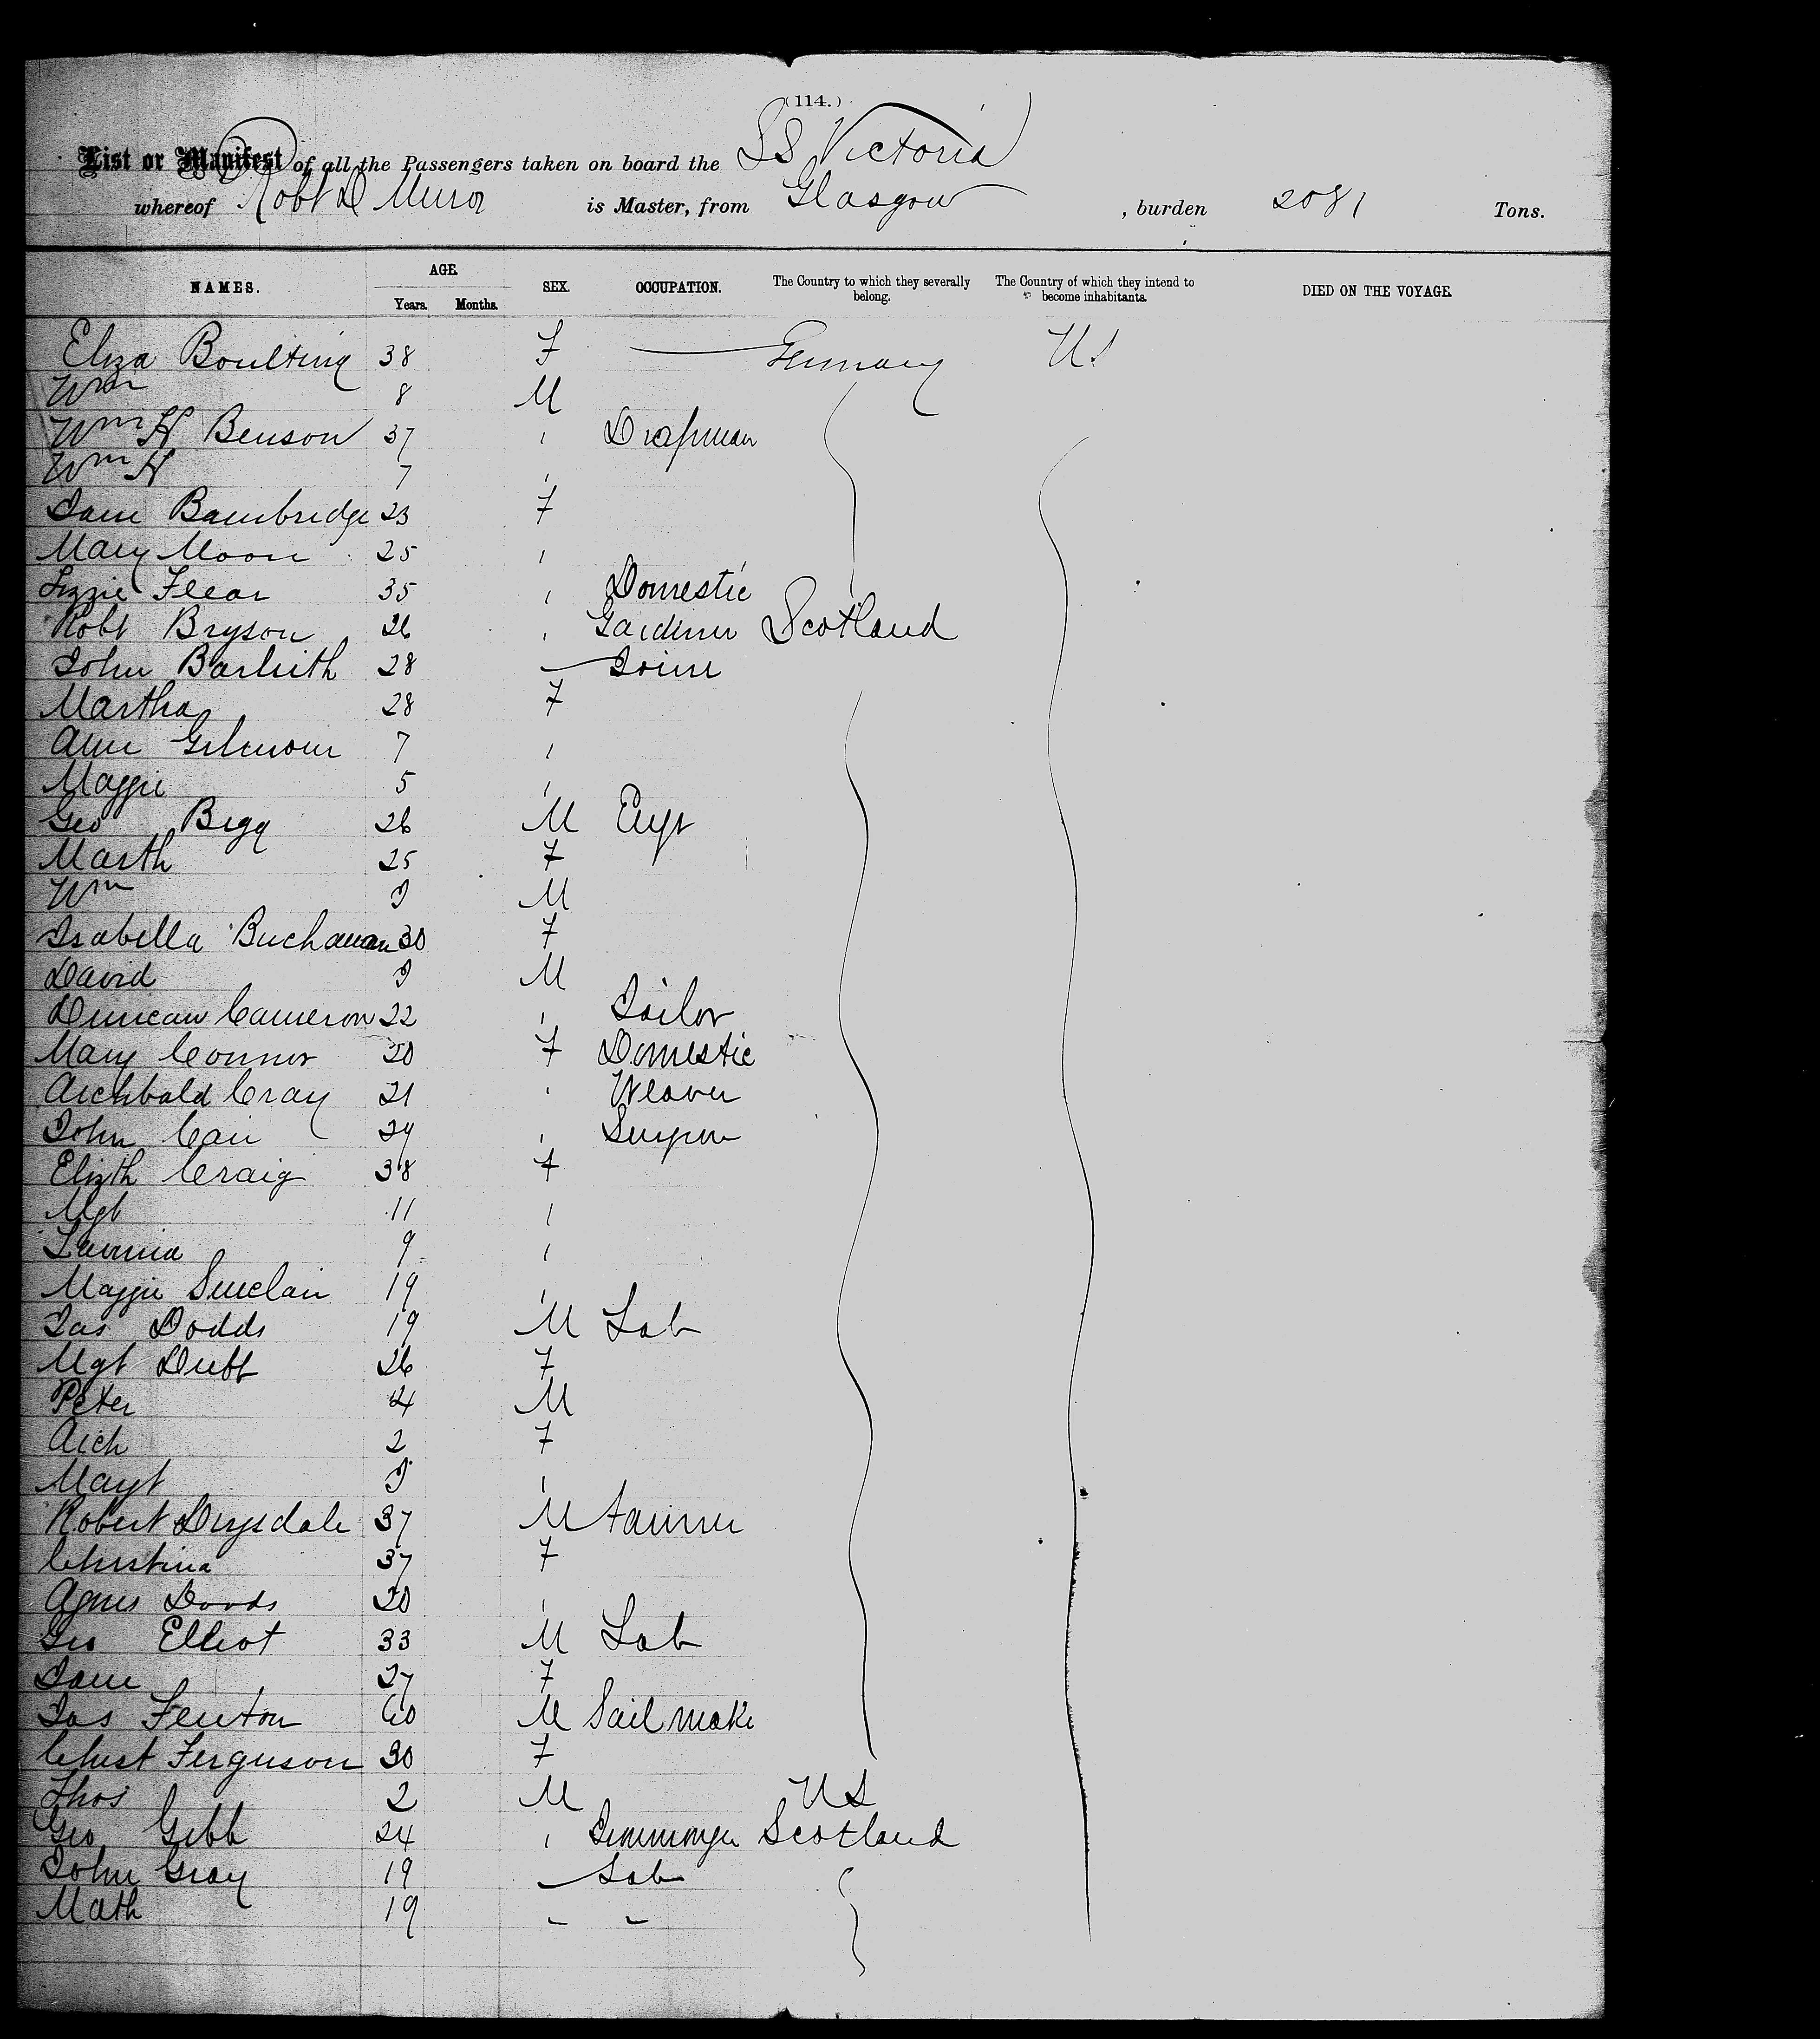 (114.)
List or Manifest of all the Passengers taken on board the SS Victoria
whereof Robt D Munro is Master, from Glasgow, burden 2081 Tons.
NAMES. AGE. SEX. OCCUPATION. The Country to which they severally belong. The Country of which they intend to become inhabitants. DIED ON THE VOYAGE.
Years. Months.
Eliza Boulting 38 F Germany US
Wm 8 M
Wm H Benson 37 ,
Wm H 7 ,
Jane Bambridge 23 F
Mary Moon 25 ,
Lizzie Flear 35 , Domestic
Robt Bryson 26 , Gardiner Scotland
John Barleith 28 Joiner
Martha 28 F
Ann Gilmour 7 ,
Maggie 5 ,
Geo Begg 26 M Engr
Marth 25 F
Wm M
Isabella Buchanan 30 F
David M
Duncan Cameron 22 , Sailor
Mary Connor 20 F Domestic
Archbald Cray 21 , Weaver
John 24 , Surgeon
Elizth Craig 38 F
Mgt 11 ,
Lavinia 9 ,
Maggie Sinclair 19 ,
Jas Dodds 19 M Lab
Mgt 26 F
Peter 4 M
Arch 2 F
Magt ,
Robert Drysdale 37 M
Christina 37 F
Agnes Dodds 20 ,
Geo Elliot 33 M Lab
Jane 27 F
Jas Fenton 60 M Sailmake
Christ Ferguson 30 F
Thos 2 M US
Geo Gibb 24 , Scotland
John Gray 19 Lab
Math 19 - -